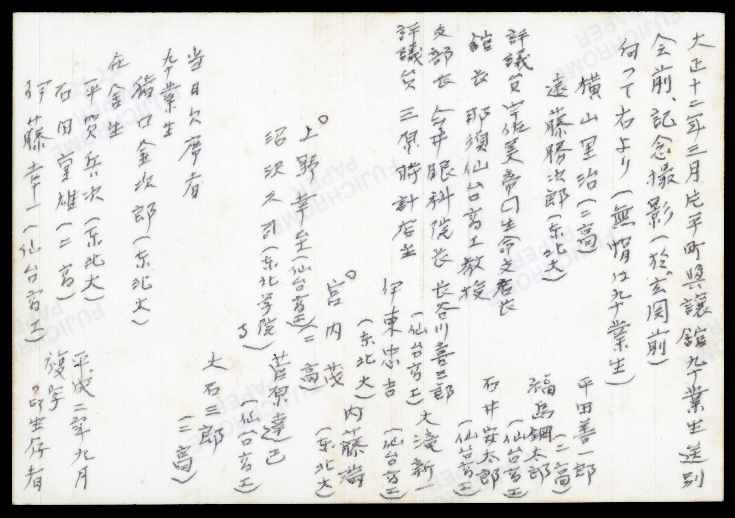 大正十二年三月片平町興譲舘卆業生送別
会前、記念撮影(於玄関前)
向って右より(無帽は卆業生)
横山里治(二高)
平田善一郎(二高)
遠藤勝次郎(东北大)
福島綱太郎(仙台高工)
評議員 宇佐美帝
舘長 那須仙台高工教授
石井安太郎(仙台高工)
支部長 今井眼科院长
長谷川喜三郎(仙台高工)
大淺新一(仙台高工)
評議員 三原時計店主
伊東忠吉(东北大)
内藤濤(东北大)
宮内茂(二高)
上野幸至(仙台高工)
沼沢久司(东北学院)
菅原達巳(仙台高工)
大石三郎(二高)
当日欠席者
卆業生
猪口金次郎(东北大)
在舎生
平賀兵次(东北大)
石田富雄(二高)
伊藤幸一(仙台高工)
平成二年九月
複写